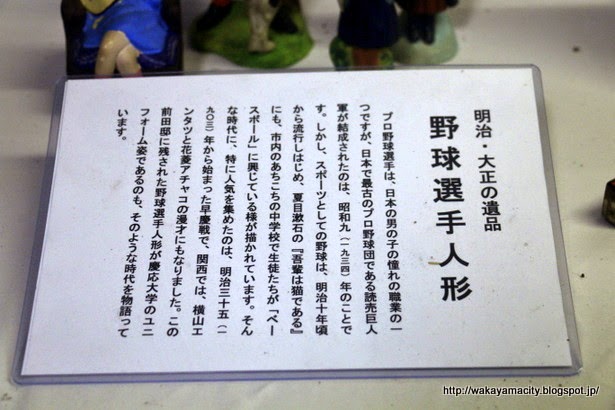 明治・大正の遺品
野球選手人形
プロ野球選手は、日本の男の子の憧れの職業の一
つですが、日本で最古のプロ野球団である読売巨人
軍が結成されたのは、昭和九（一九三四）年のことで
す。しかし、スポーツとしての野球は、明治十年頃
から流行しはじめ、夏目漱石の『吾輩は猫である』
にも、市内のあちこちの中学校で生徒たちが「ベー
スボール」に興じている様が描かれています。そん
な時代に、特に人気を集めたのは、明治三十五（一
九〇三）年から始まった早慶戦で、関西では、横山エ
ンタツと花菱アチャコの漫才にもなりました。この
前田邸に残された野球選手人形が慶応大学のユニ
フォーム姿であるのも、そのような時代を物語って
います。
http://wakayamacity.blogspot.jp/